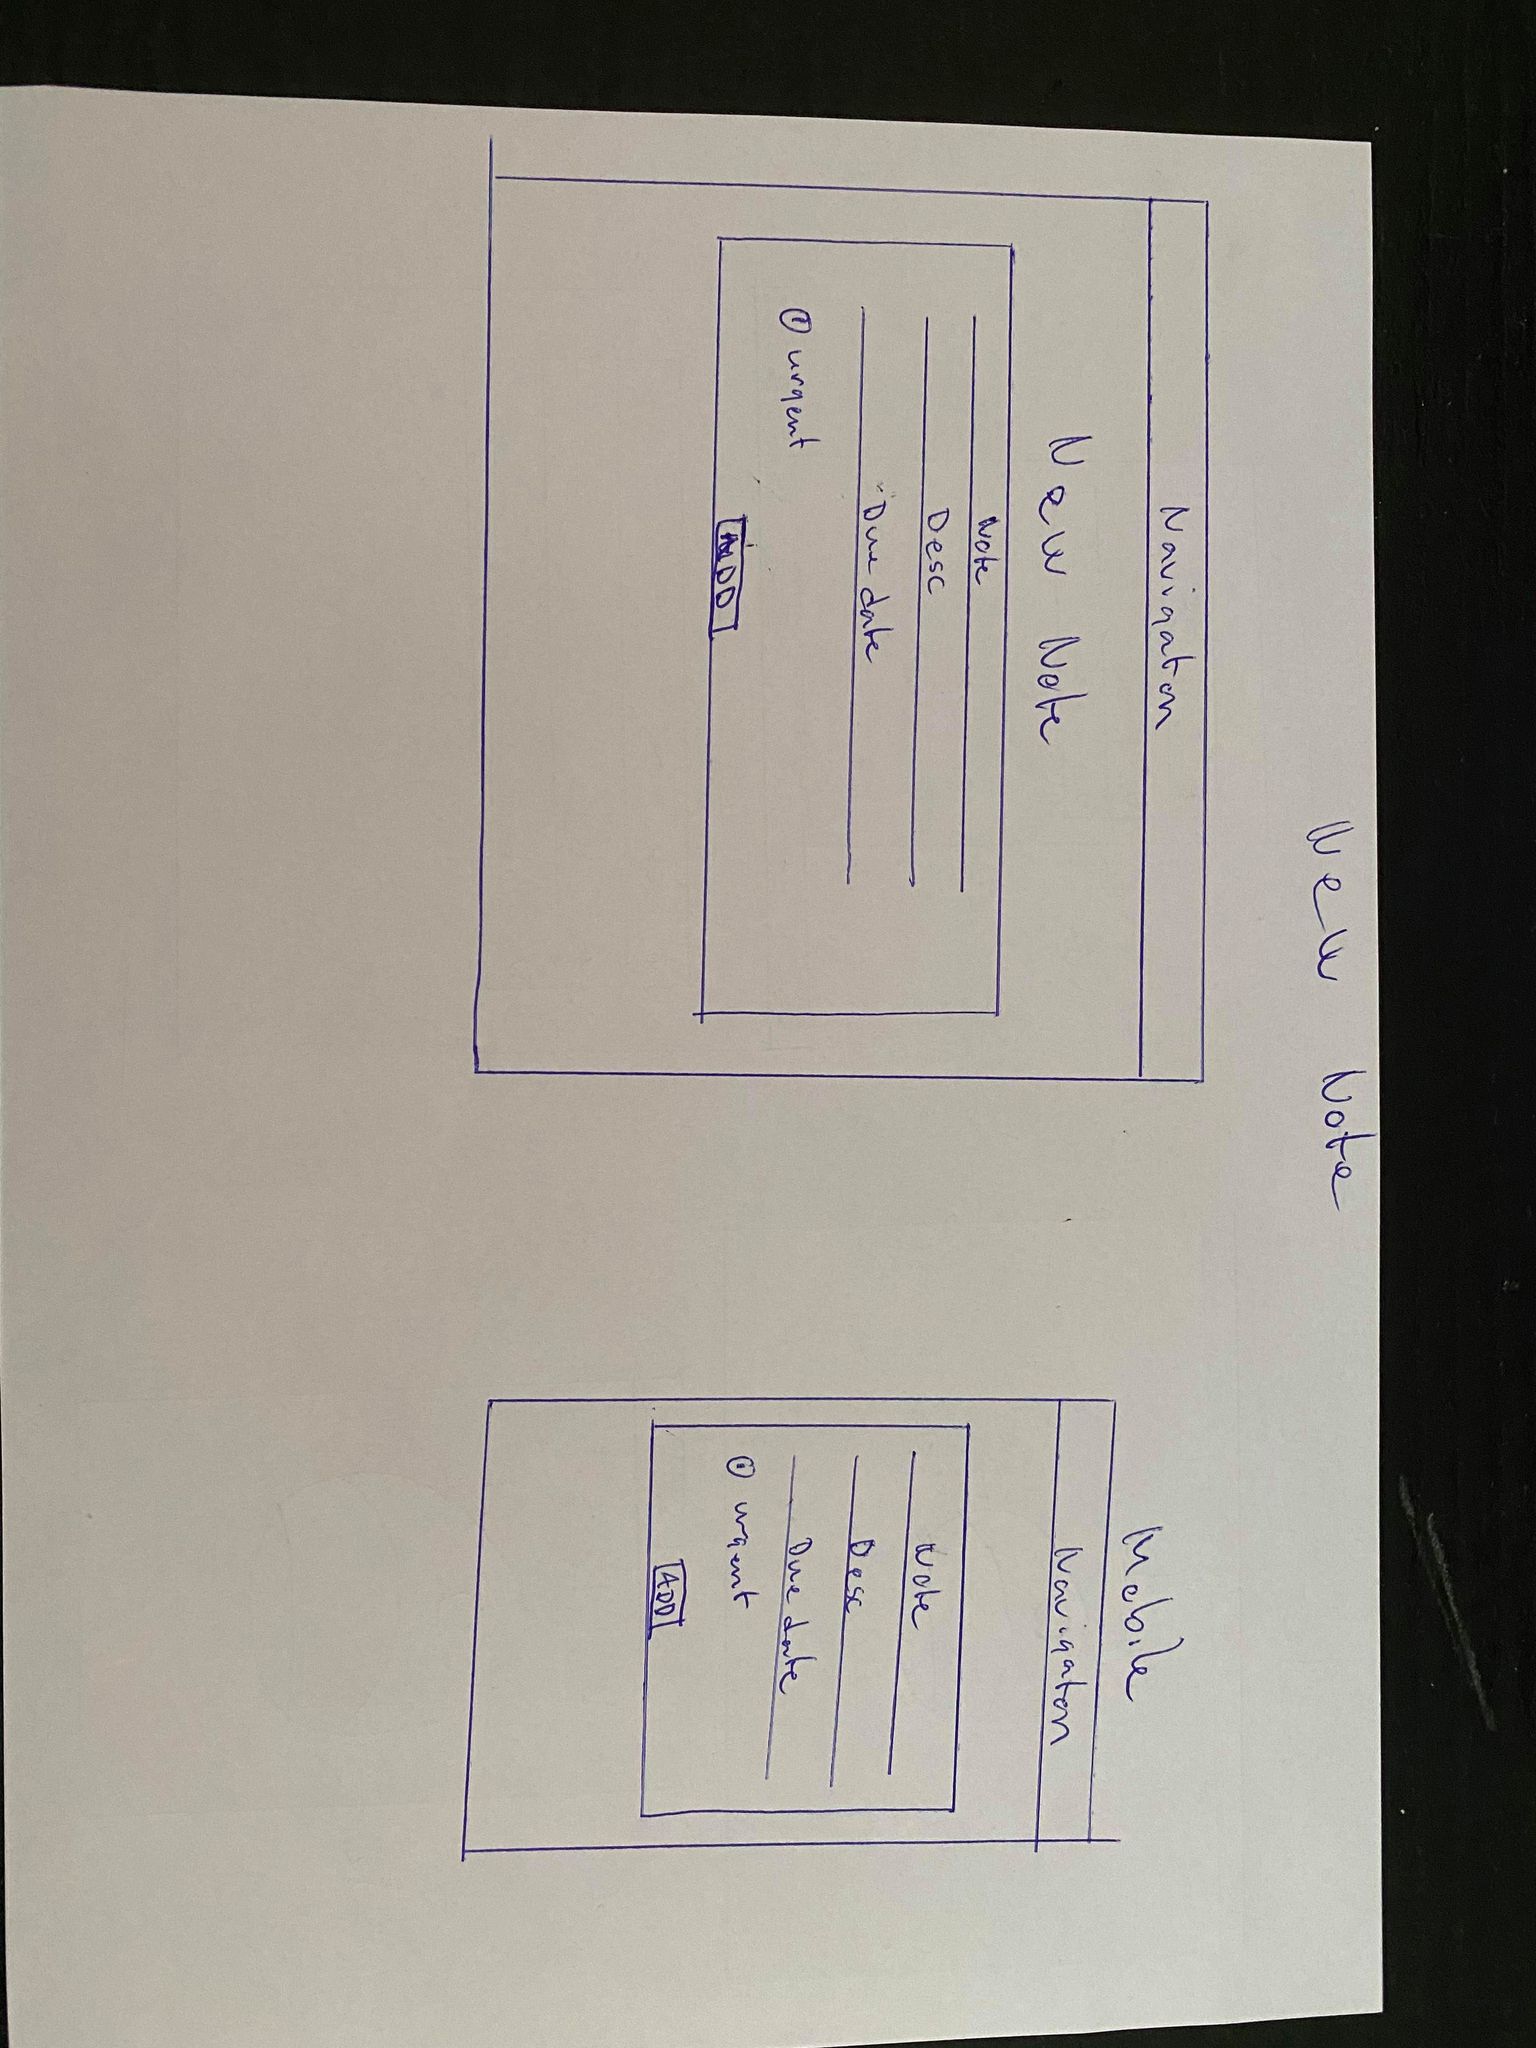 New Note
Navigaton
New Note
Note
Desc
Due date
urgent
ADD
Mobile
Navigaton
Note
Desc
Due date
urgent
ADD